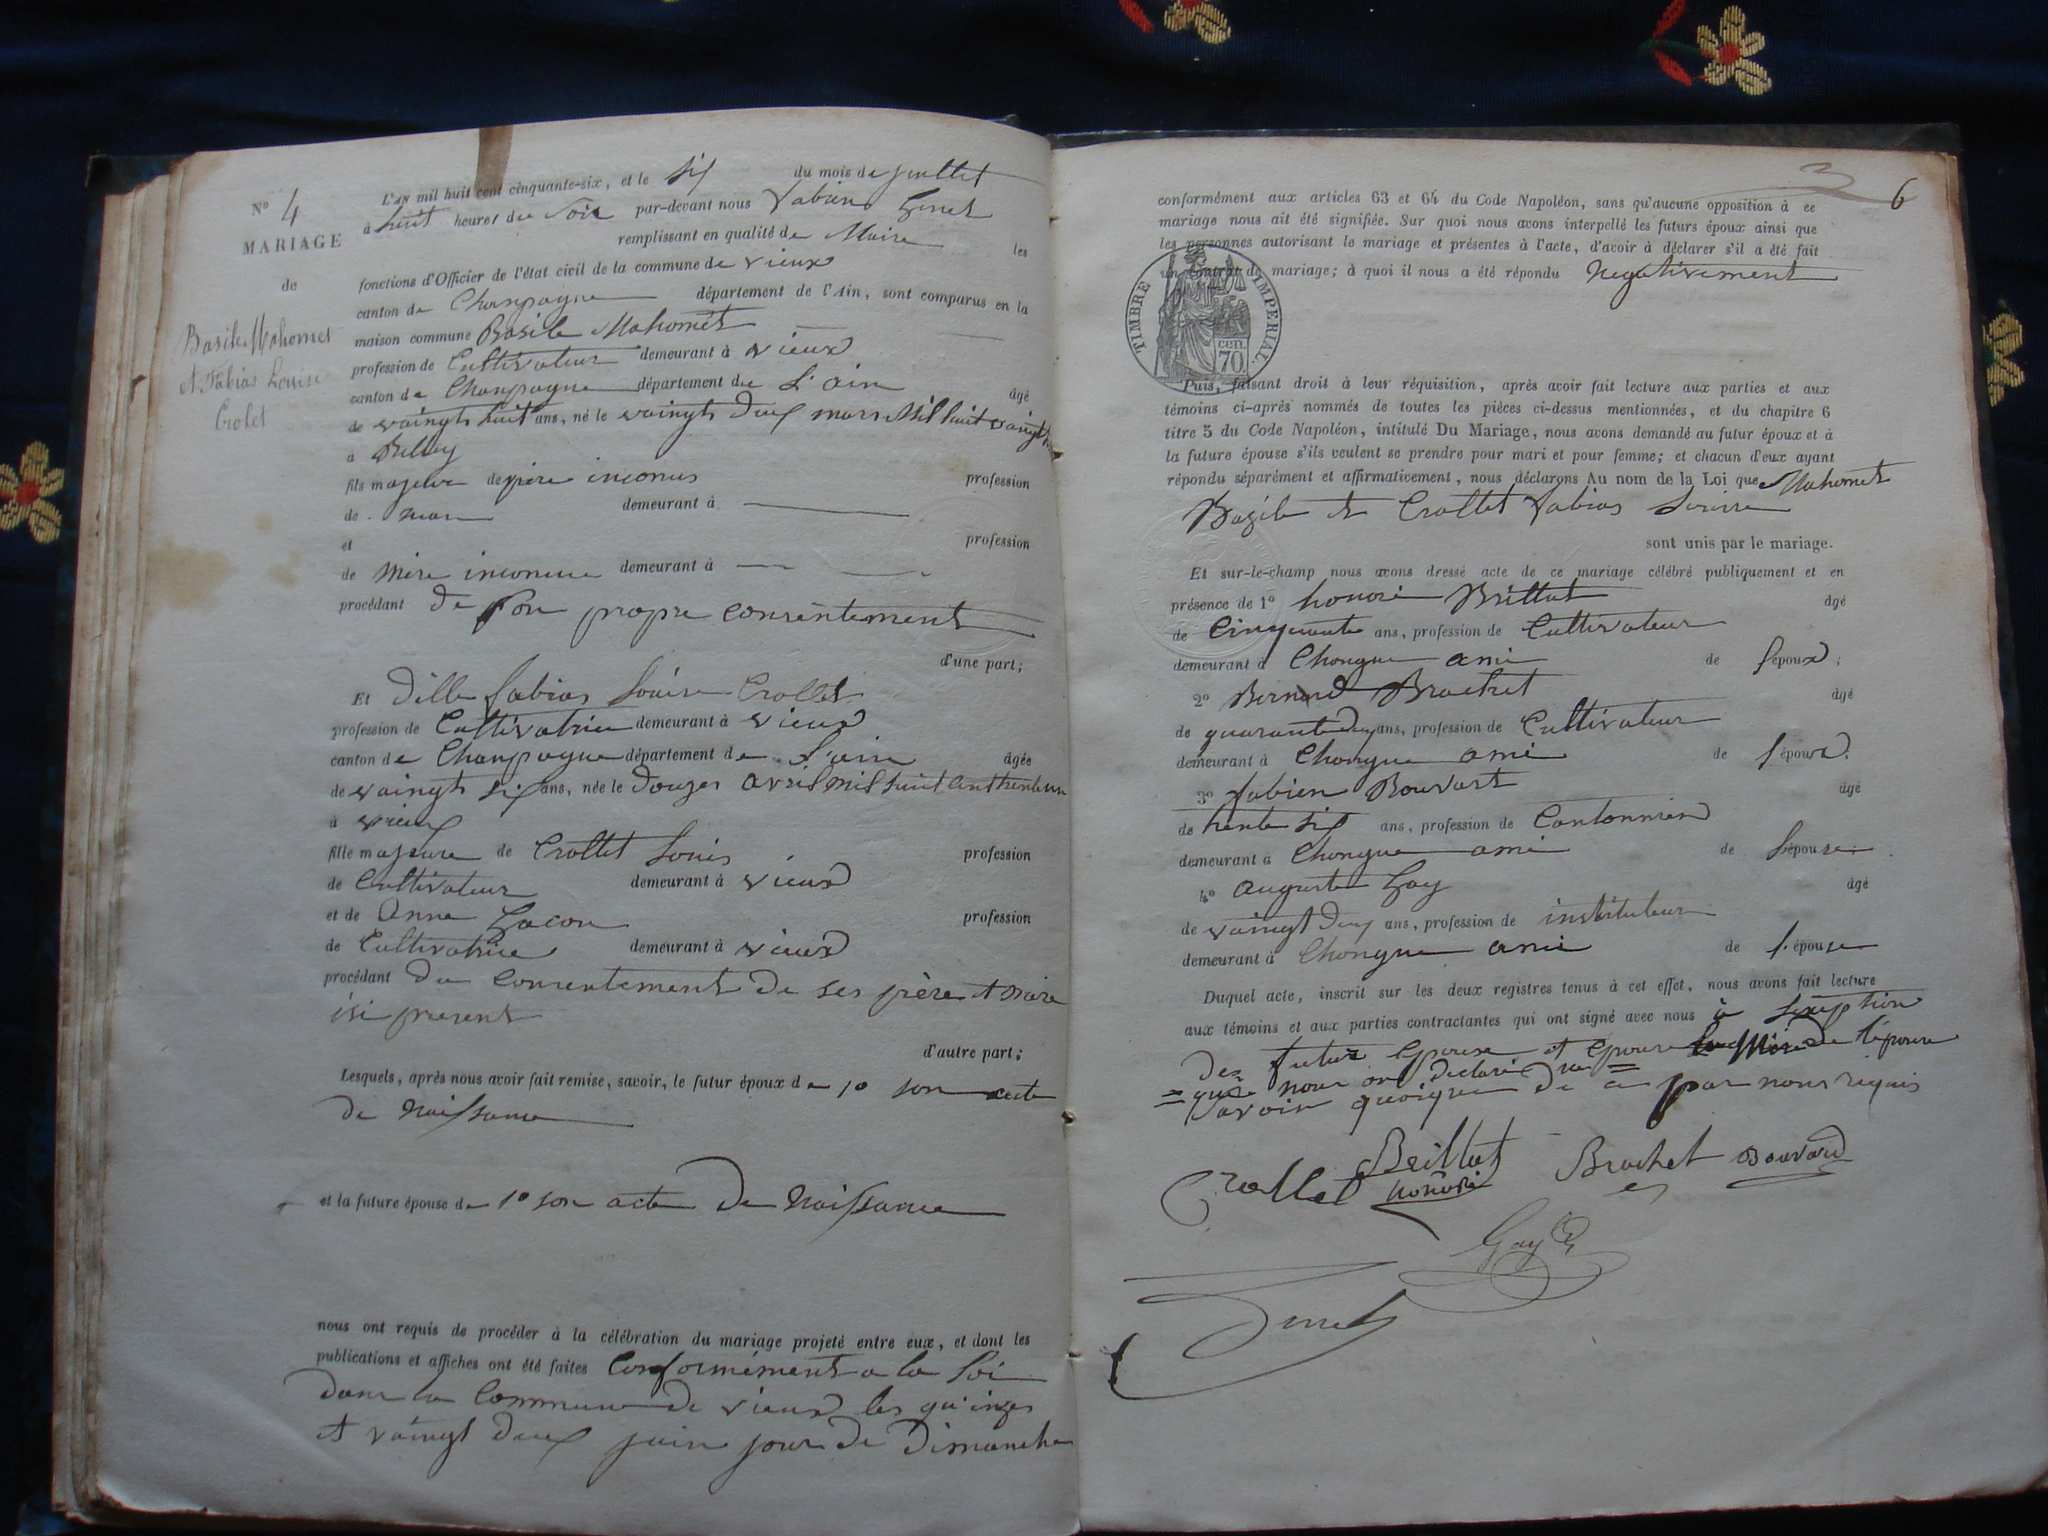 N° 4
MARIAGE
de
Basile Mahomet
et Fabias Louise
Crolet
L'AN mil huit cent cinquante-six, et le six du mois de juillet
à huit heures du soir par-devant nous Fabien Genet
remplissant en qualité de Maire les
fonctions d'Officier de l'état civil de la commune de vieux
canton de Champagne département de l'Ain, sont comparus en la
maison commune Basile Mahomet
profession de Cultivateur demeurant à vieux
canton de Champagne département de L'ain âgé
de vaingt huit ans, né le vaingt deux mars Mil huit vaingt
à Belley
fils majeur de père inconus profession
de demeurant à
et profession
de Mère inconnue demeurant à
procédant de son propre consentement
d'une part;
Et dille fabias Louise Crollet
profession de Cultivatrice demeurant à vieux
canton de Champagne département de L'ain âgée
de vaingt six ans, née le douzes avril mil huit cent trente un
à vieux
fille majeure de Crollet Louis profession
de Cultivateur demeurant à vieux
et de Anne Gacon profession
de Cultivatrice demeurant à vieux
procédant du consentement de ses père et mère
isi present
d'autre part;
Lesquels, après nous avoir fait remise, savoir, le futur époux de 1° son acte
de naissance
et la future épouse de 1° son acte de naissance
nous ont requis de procéder à la célébration du mariage projeté entre eux, et dont les
publications et affiches ont été faites conformément a la loi
dans la commune de vieux les qu'inzes
et vaingt deux juin jour de Dimanche
3
6
conformément aux articles 63 et 64 du Code Napoléon, sans qu'aucune opposition à ce
mariage nous ait été signifiée. Sur quoi nous avons interpellé les futurs époux ainsi que
les personnes autorisant le mariage et présentes à l'acte, d'avoir à déclarer s'il a été fait
un contrat de mariage; à quoi il nous a été répondu Négativement
TIMBRE IMPERIAL
CEN. 70
Puis, faisant droit à leur réquisition, après avoir fait lecture aux parties et aux
témoins ci-après nommés de toutes les pièces ci-dessus mentionnées, et du chapitre 6
titre 5 du Code Napoléon, intitulé Du Mariage, nous avons demandé au futur époux et à
la future épouse s'ils veulent se prendre pour mari et pour femme; et chacun d'eux ayant
répondu séparément et affirmativement, nous déclarons Au nom de la Loi que Mahomet
Bazile et Crollet Fabias Louise
sont unis par le mariage.
Et sur-le-champ nous avons dressé acte de ce mariage célébré publiquement et en
présence de 1° honoré Brillat âgé
de Cinquante ans, profession de Cultivateur
demeurant à Chongne ami de l'époux;
2° Bernard Brachet âgé
de quarante deux ans, profession de Cultivateur
demeurant à Chongne ami de l'époux.
3° fabien Bouvart âgé
de trente six ans, profession de Cantonnier
demeurant à Chongne ami de l'épouse
4° auguste Gay âgé
de vaingt deux ans, profession de instituteur
demeurant à Chongne ami de l'épouse
Duquel acte, inscrit sur les deux registres tenus à cet effet, nous avons fait lecture
aux témoins et aux parties contractantes qui ont signé avec nous à
des futur Epouse et mère de l'épouse
nous on declaré ne
savoir quoique de ce par nous requis
Crollet Brillat honoré Brachet Bouvard
Gay
Genet